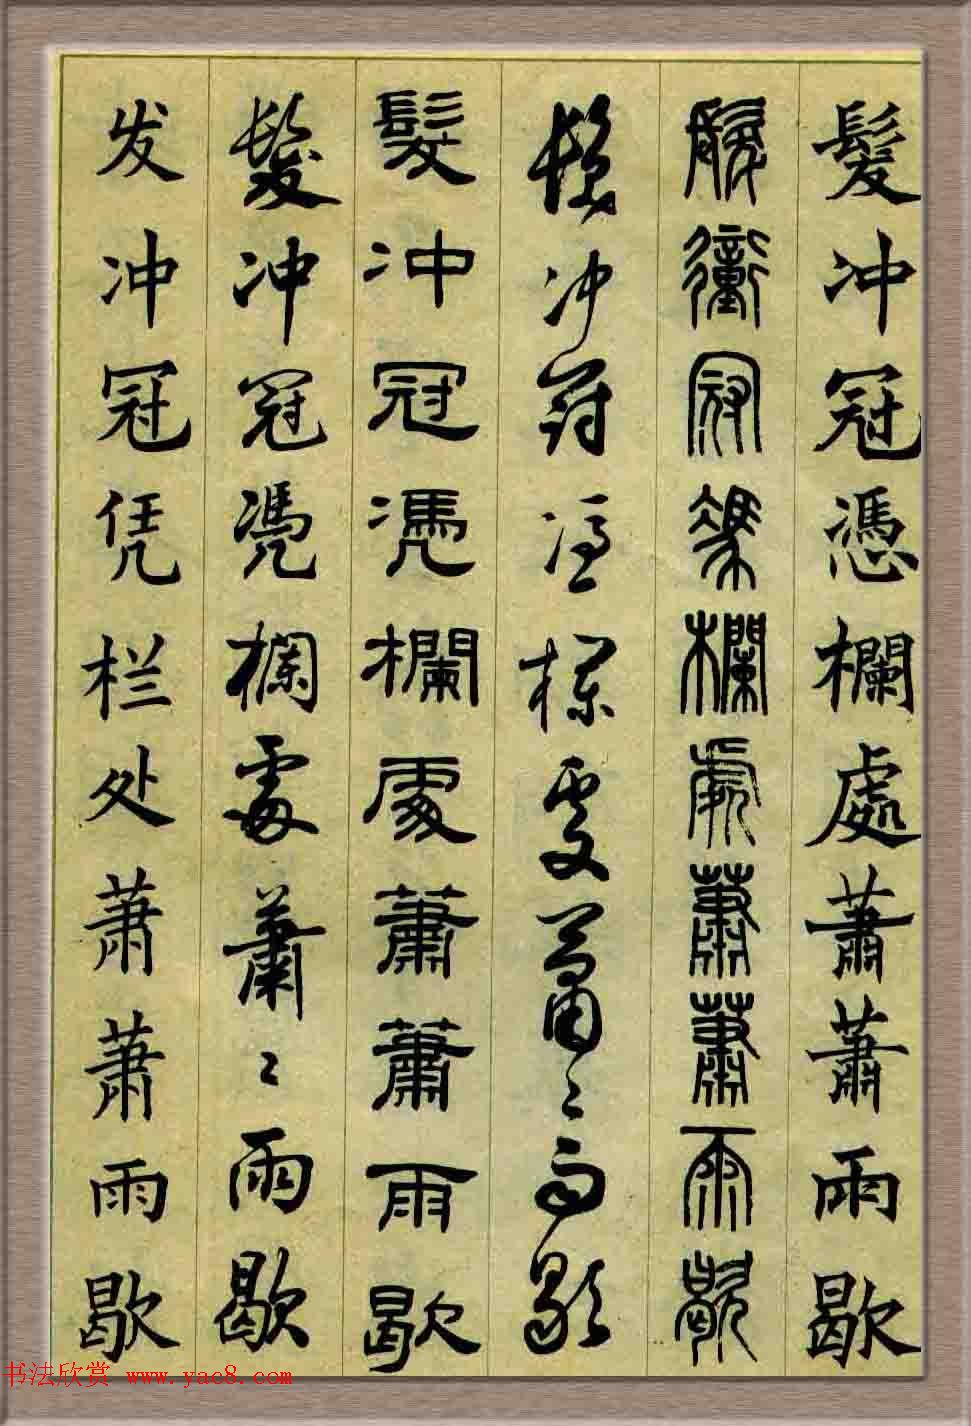 髮冲冠憑欄處蕭蕭雨歇
髮衝冠馮欄處蕭蕭雨歇
髮冲冠憑欄處蕭〻雨歇
髮冲冠凴欄處蕭蕭雨歇
髮冲冠凴欄處蕭〻雨歇
发冲冠凭栏处萧萧雨歇
书法欣赏 www.yac8.com